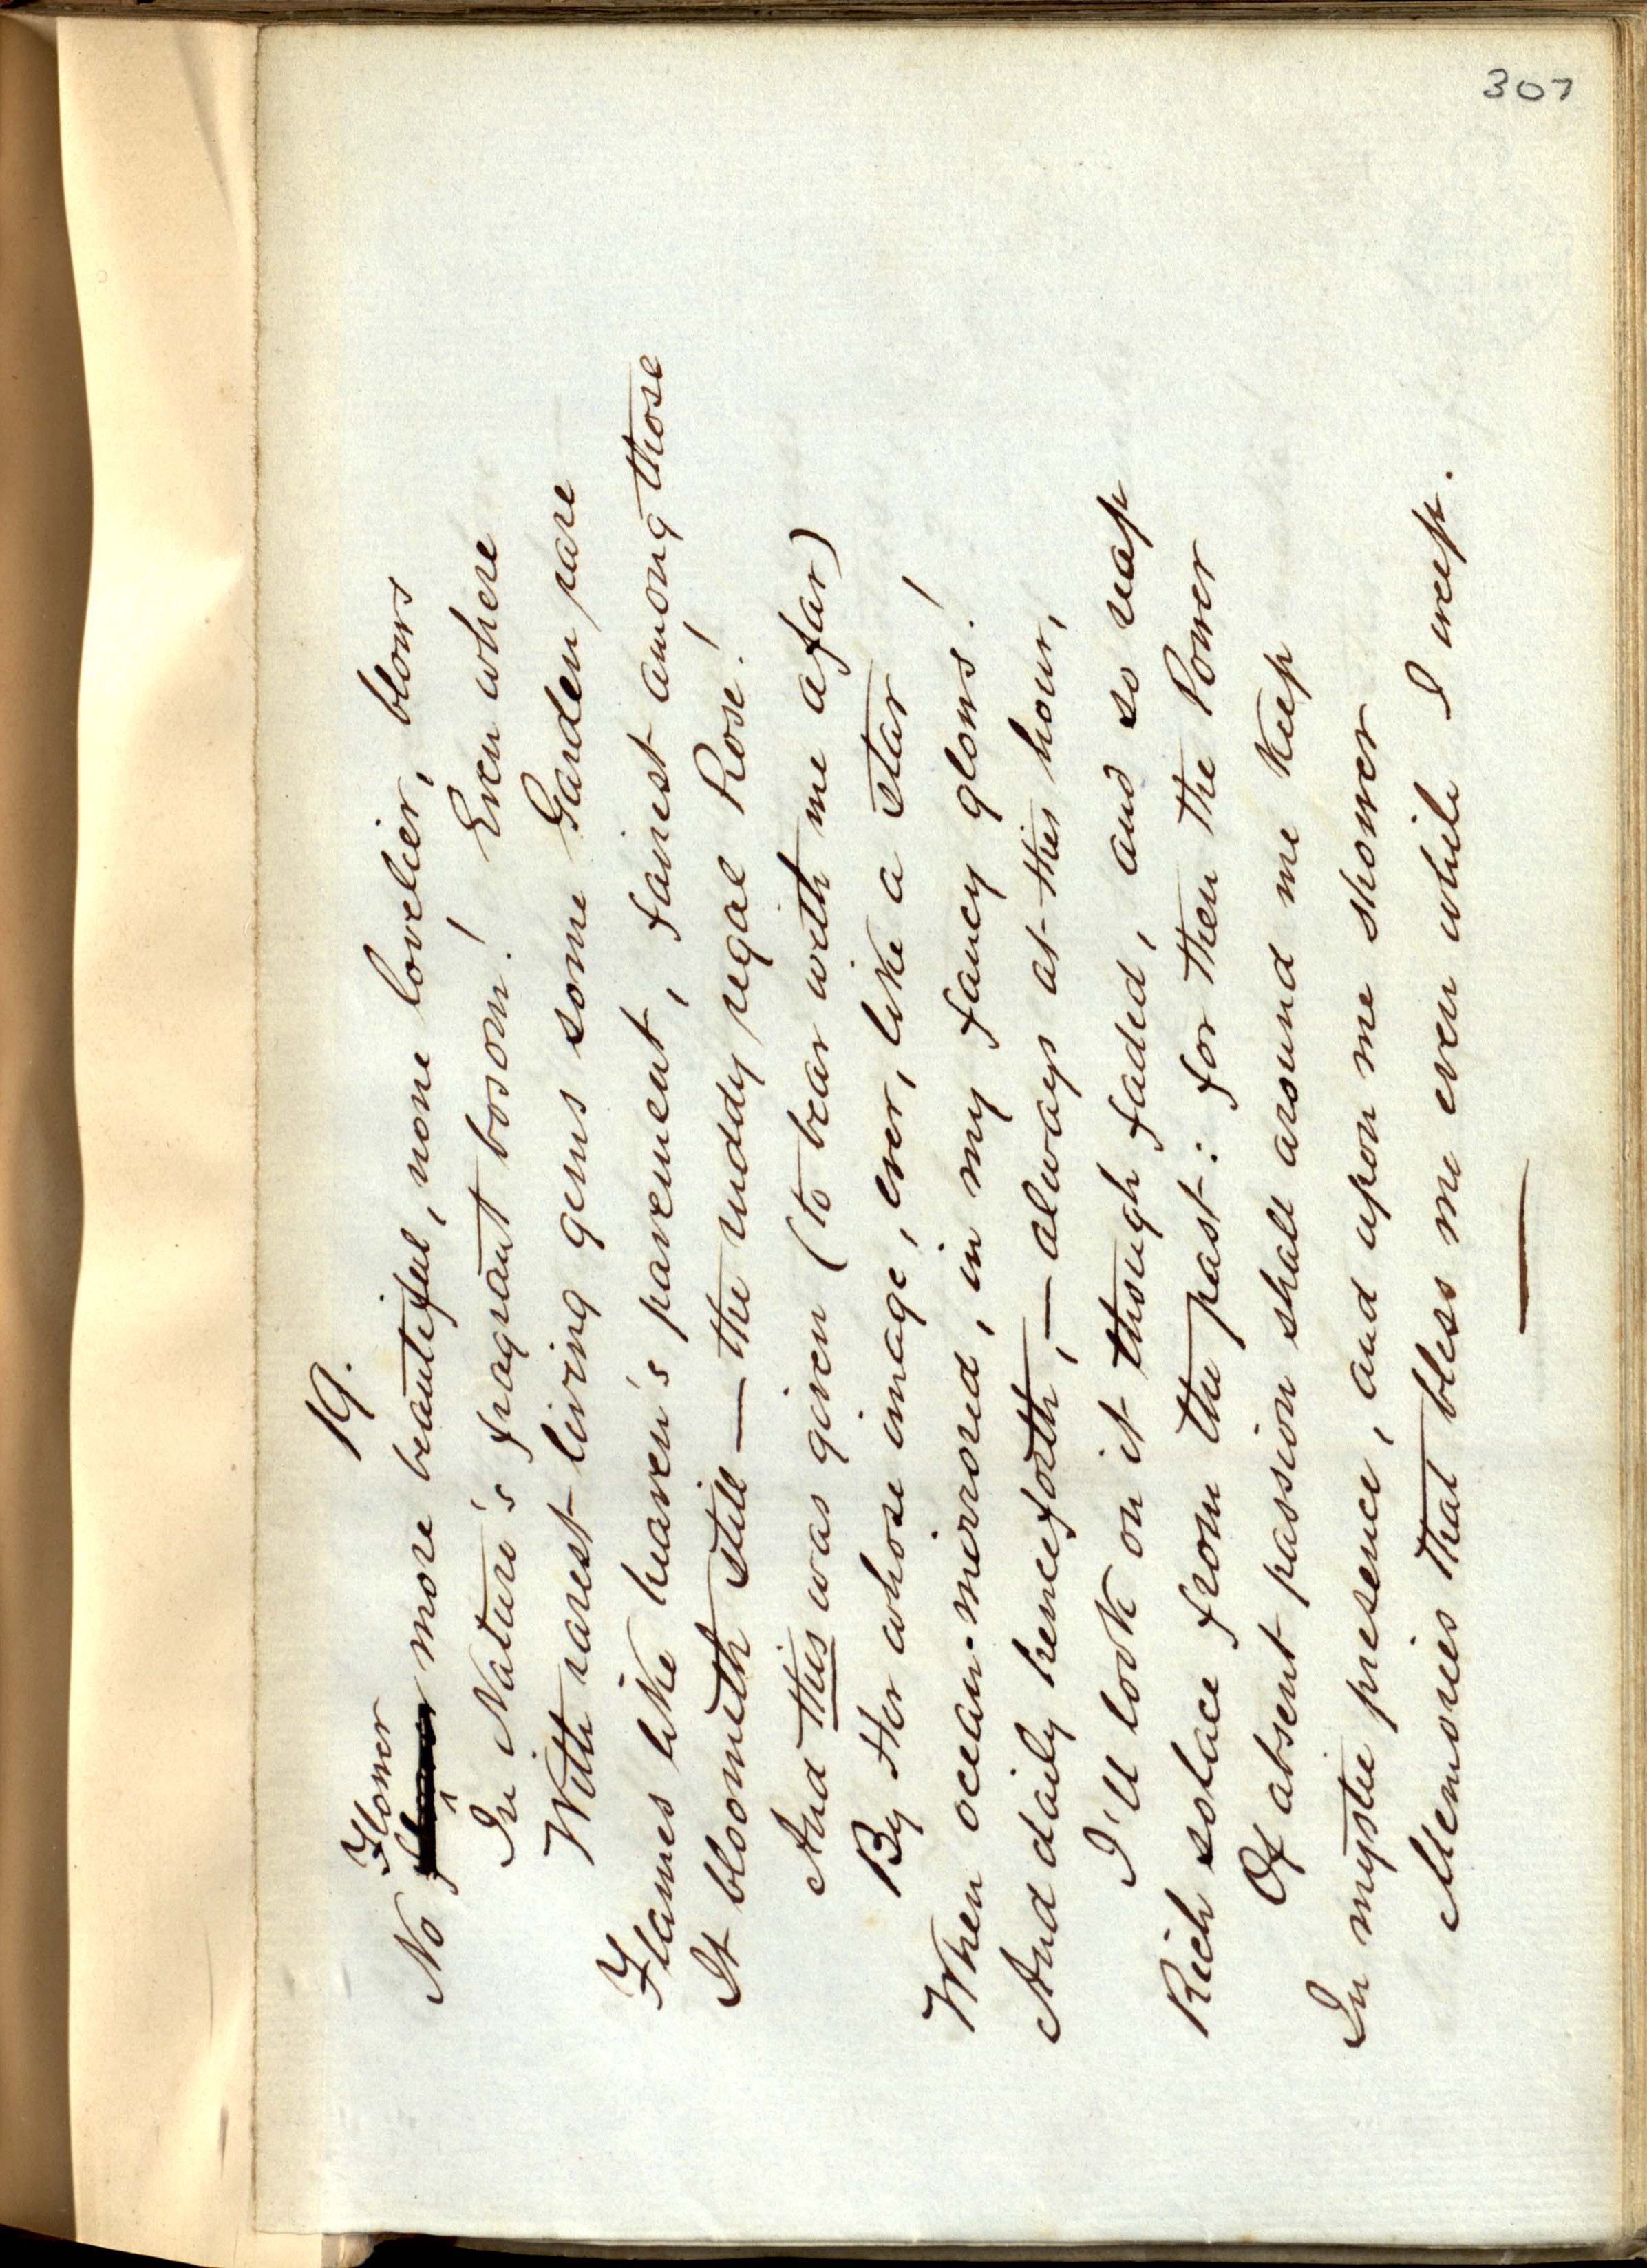 307
19.
Flower
No flower more beautiful, none lovelier, blows
In Nature's fragrant bosom! Even where
With rarest living gems some Garden rare
Flames like heaven's pavement, fairest among those
It bloometh still — the ruddy regal Rose!
And this was given (to bear with me afar)
By Her whose image, ever, like a star
When ocean-mirrored, in my fancy glows!
And daily henceforth, — always at this hour,
I'll look on it though faded, and so reap
Rich solace from the past: for then the Power
Of absent passion shall around me keep
In mystic presence, and upon me shower
Memories that bless me even while I weep.